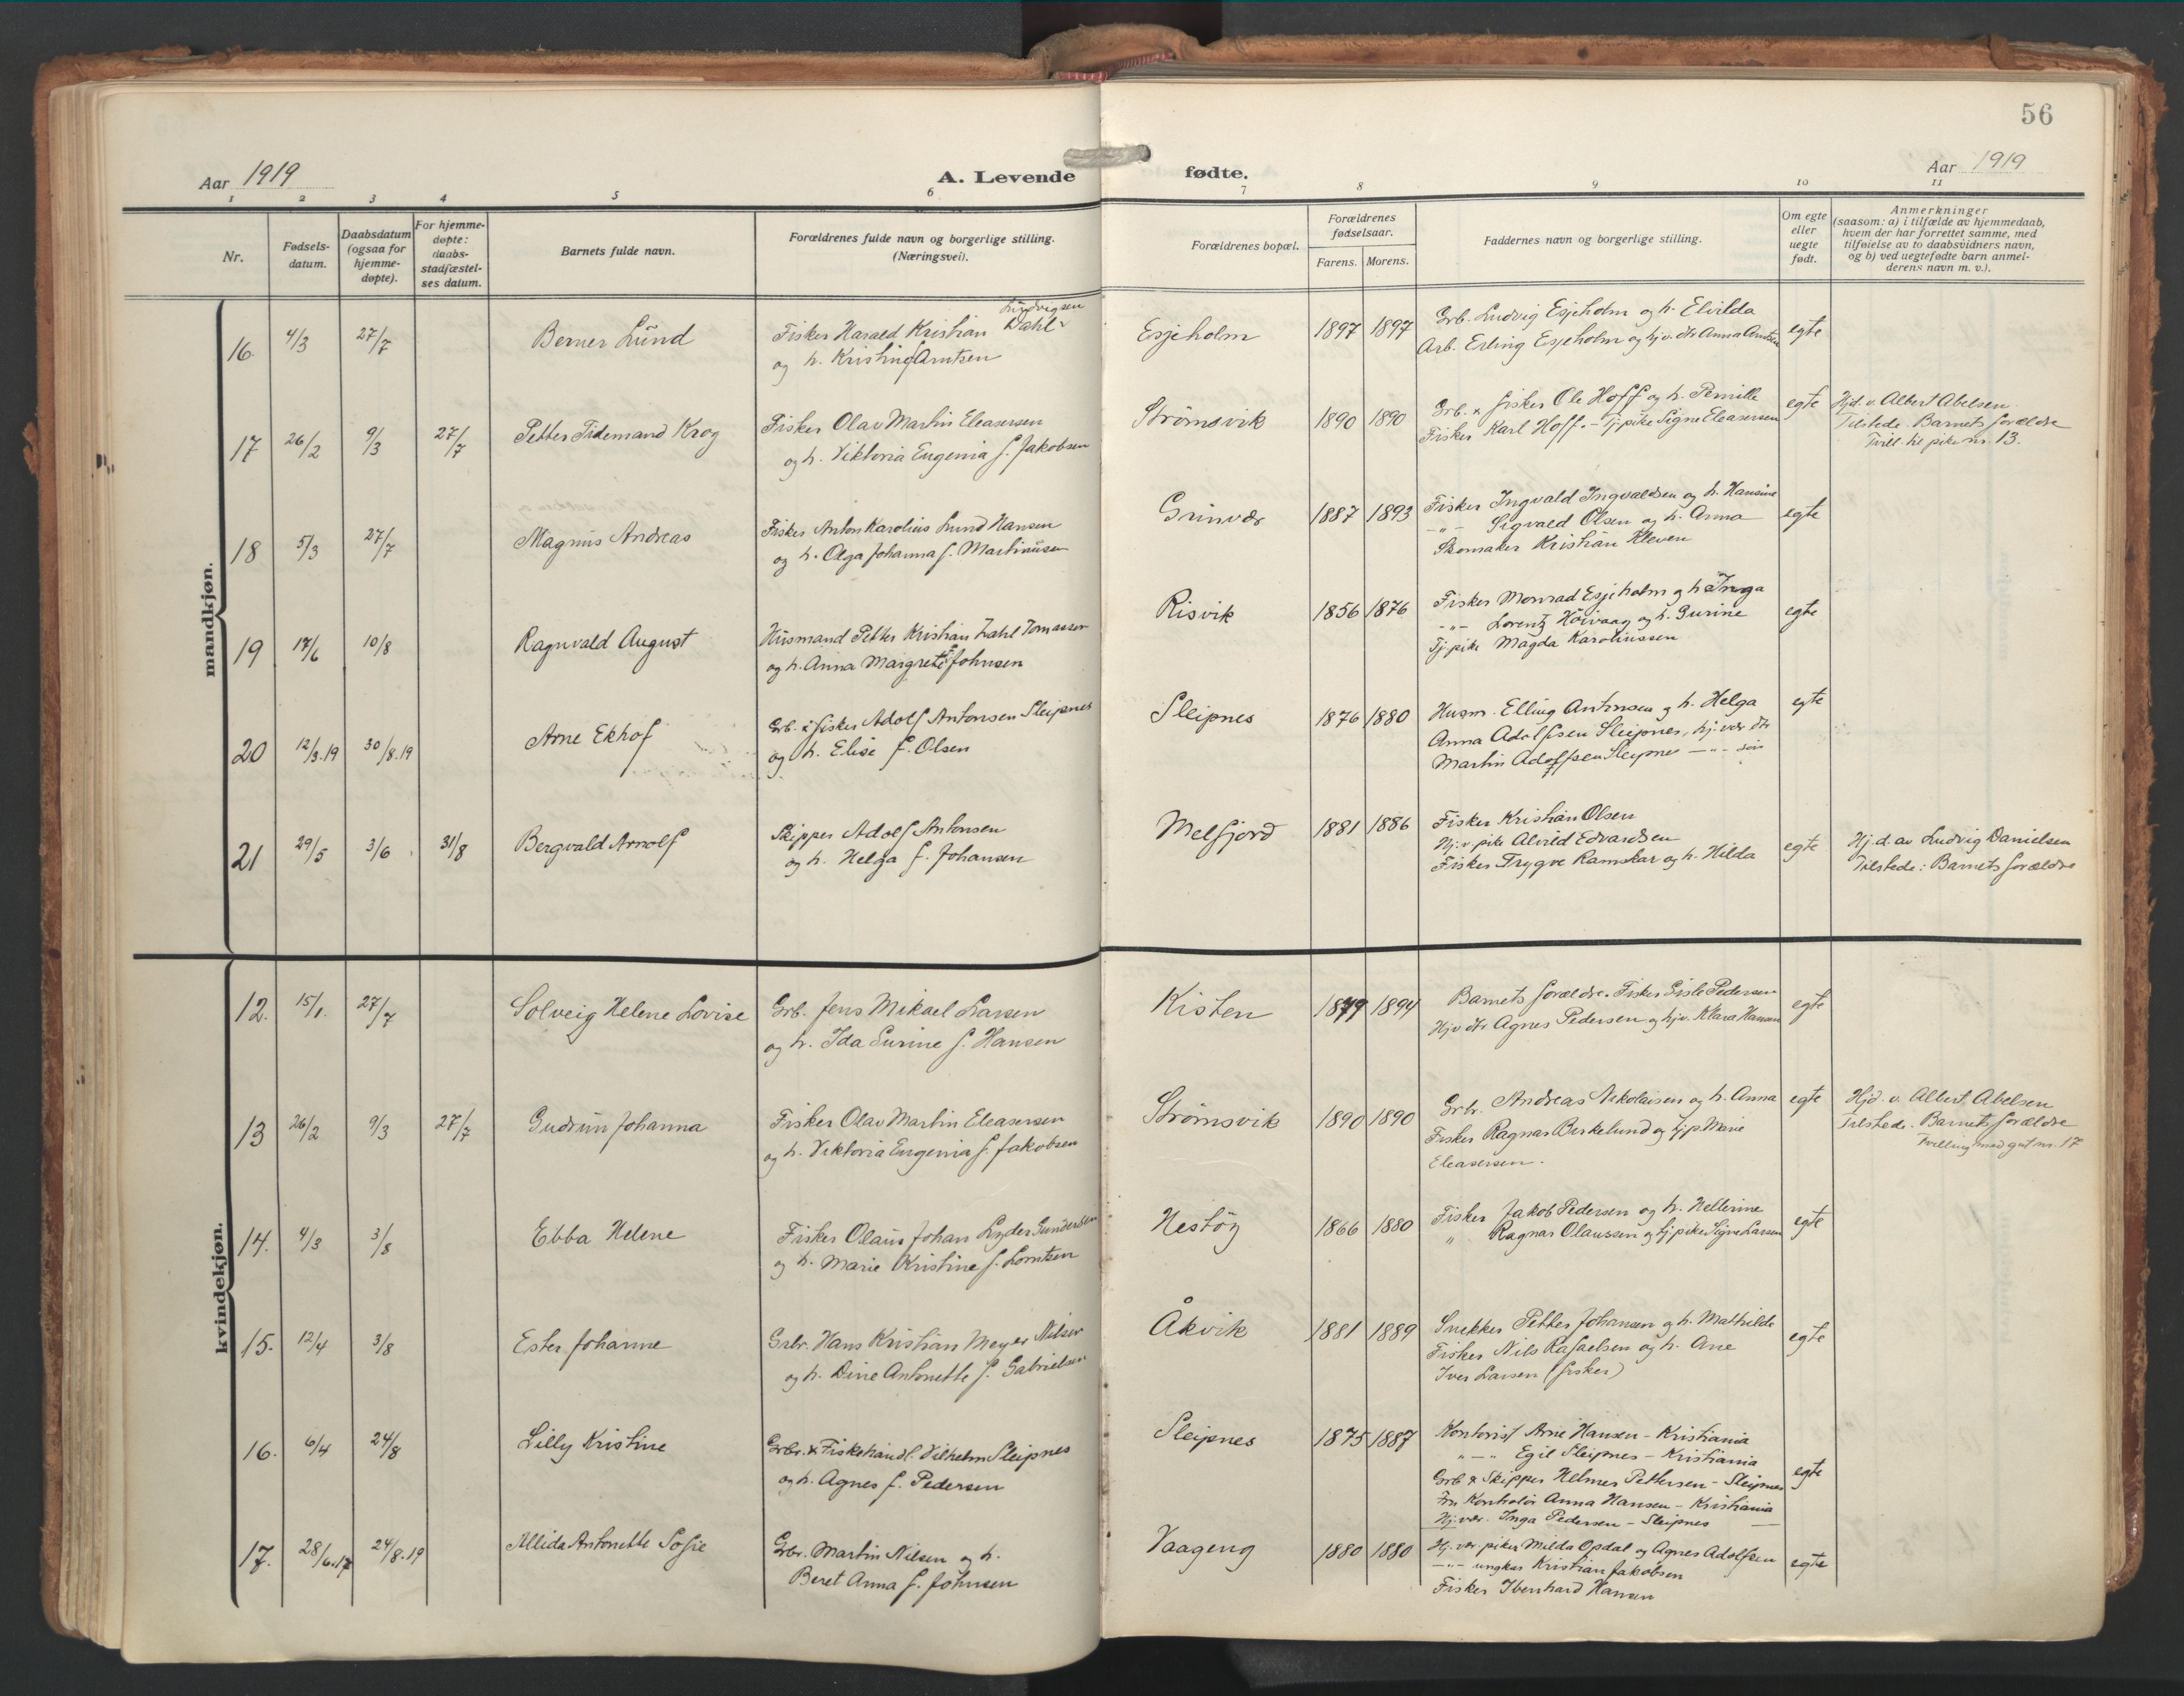 56
Aar 1919
A. Levende fødte.
Aar 1919
1 2 3 4 5 6 7 8 9 10 11
Nr.
Fødsels-
datum.
Daabsdatum
(ogsaa for
hjemme-
døpte).
For hjemme-
døpte:
daabs-
stadfæstel-
ses datum.
Barnets fulde navn.
Forældrenes fulde navn og borgerlige stilling.
(Næringsvei).
Forældrenes bopæl.
Forældrenes
fødselsaar.
Farens. Morens.
Faddernes navn og borgerlige stilling.
Om egte
eller
uegte
født.
Anmerkninger
(saasom: a) i tilfælde av hjemmedaab,
hvem der har forrettet samme, med
tilføielse av to daabsvidners navn,
og b) ved uegtefødte barn anmel-
derens navn m. v.).
mandkjøn.
16. 4/3 27/7 Berner Lund
Ludvigsen
Fisker Harald Kristian Dahl
og h. Kristine f. Arntsen
Esjeholm 1897 1897
Grb. Ludvig Esjeholm og h. Elvilda
Arb. Erling Esjeholm og hjv. dtr Anna Arntsen
egte
17 26/2 9/3 27/7 Petter Tidemand Krog
Fisker Olav Martin Eleasersen
og h. Viktoria Eugenia f. Jakobsen
Strömsvik 1890 1890
Grb. & fisker Ole Hoff og h. Pernille
Fisker Karl Hoff. - Tj. pike Signe Eleasersen
egte
Hjd. v. Albert Abelsen.
Tilstede. Barnets forældre
Tvill. til pike nr. 13.
18 5/3 27/7 Magnus Andreas
Fisker Anton Karolius Lund Hansen
og h. Olga Johanna f. Martinusen
Grinvær 1887 1893
Fisker Ingvald Ingvaldsen og h. Hansine
-"- Sigvald Olsen og h. Anna
Skomaker Kristian Kleven
egte
19 17/6 10/8 Ragnvald August
Husmand Petter Kristian Zahl Tomassen
og h. Anna Margrete f. Johnsen
Risvik 1856 1876
Fisker Monrad Esjeholm og h. Inga
-"- Lorentz Höivaag og h. Gurine
Tj. pike Magda Karolinssen
egte
20 12/3.19 30/8.19 Arne Ekhof
Grb. & fisker Adolf Antonsen Sleipnes
og h. Elise f. Olsen
Sleipnes 1876 1880
Husm. Elling Antonsen og h. Helga
Anna Adolfsen Sleipnes, hj. vær. dtr
Martin Adolfsen Sleipnes -"- søn
egte
21 29/5 3/6 31/8 Bergvald Arnolf
Skipper Adolf Antonsen
og h. Helga f. Johansen
Melfjord 1881 1886
Fisker Kristian Olsen
Hj. v. pike Alvild Edvardsen
Fisker Trygve Ramskar og h. Hilda
egte
Hj.d. av Ludvig Danielsen
Tilstede: Barnets forældre
kvindekjøn.
12. 15/1. 27/7 Solveig Helene Lovise
Grb. Jens Mikael Larsen
og h. Ida Surine f. Hansen
Kisten 1879 1894
Barnets forældre. Fisker Gisle Pedersen
Hjv dtr Agnes Pedersen og hjv. Klara Hansen
egte
13 26/2 9/3 27/7 Gudrun Johanna
Fisker Olav Martin Eleasersen
og h. Viktoria Eugenia f. Jakobsen
Strömsvik 1890 1890
Grbr. Andreas Nikolaisen og h. Anna
Fisker Ragnar Birkelund og tj.p. Marie
Eleasersen.
egte
Hjd. v. Albert Abelsen
Tilstede. Barnets forældre
Tvilling med gut nr. 17
14. 4/3 3/8 Ebba Helene
Fisker Olaus Johan Lyder Gundersen
og h. Marie Kristine f. Lorntsen
Nestöy 1866 1880
Fisker Jakob Pedersen og h. Nellerine
" Ragnar Olaussen og tj. pike Signe Larsen
egte
15. 12/4 3/8 Ester Johanne
Grbr. Hans Kristian Meyer Nilsen
og h. Dine Antonette f. Gabrielsen
Åkvik 1881 1889
Snekker Petter Johansen og h. Mathilde
Fisker Nils Rafaelsen og h. Ane
Iver Larsen (fisker)
egte
16. 6/4 24/8 Lilly Kristine
Grbr. & Fiskehandl. Vilhelm Sleipnes
og h. Agnes f. Pedersen
Sleipnes 1875 1887
Kontorist Arne Hansen - Kristiania
-"- Egil Sleipnes - Kristiania
Grb & Skipper Helmer Pettersen - Sleipnes
Fru Kontrolör Anna Hansen - Kristiania
Hj. vær. Inga Pedersen - Sleipnes
egte
17. 28/6.17 24/8.19 Allida Antonette Sofie
Grbr. Martin Nilsen og h.
Beret Anna f. Johnsen
Vaageng 1880 1880
Hj. vær. piker Milda Opdal og Agnes Adolfsen
-"- ungkar Kristian Jakobsen
Fisker Ibenhard Hansen
egte